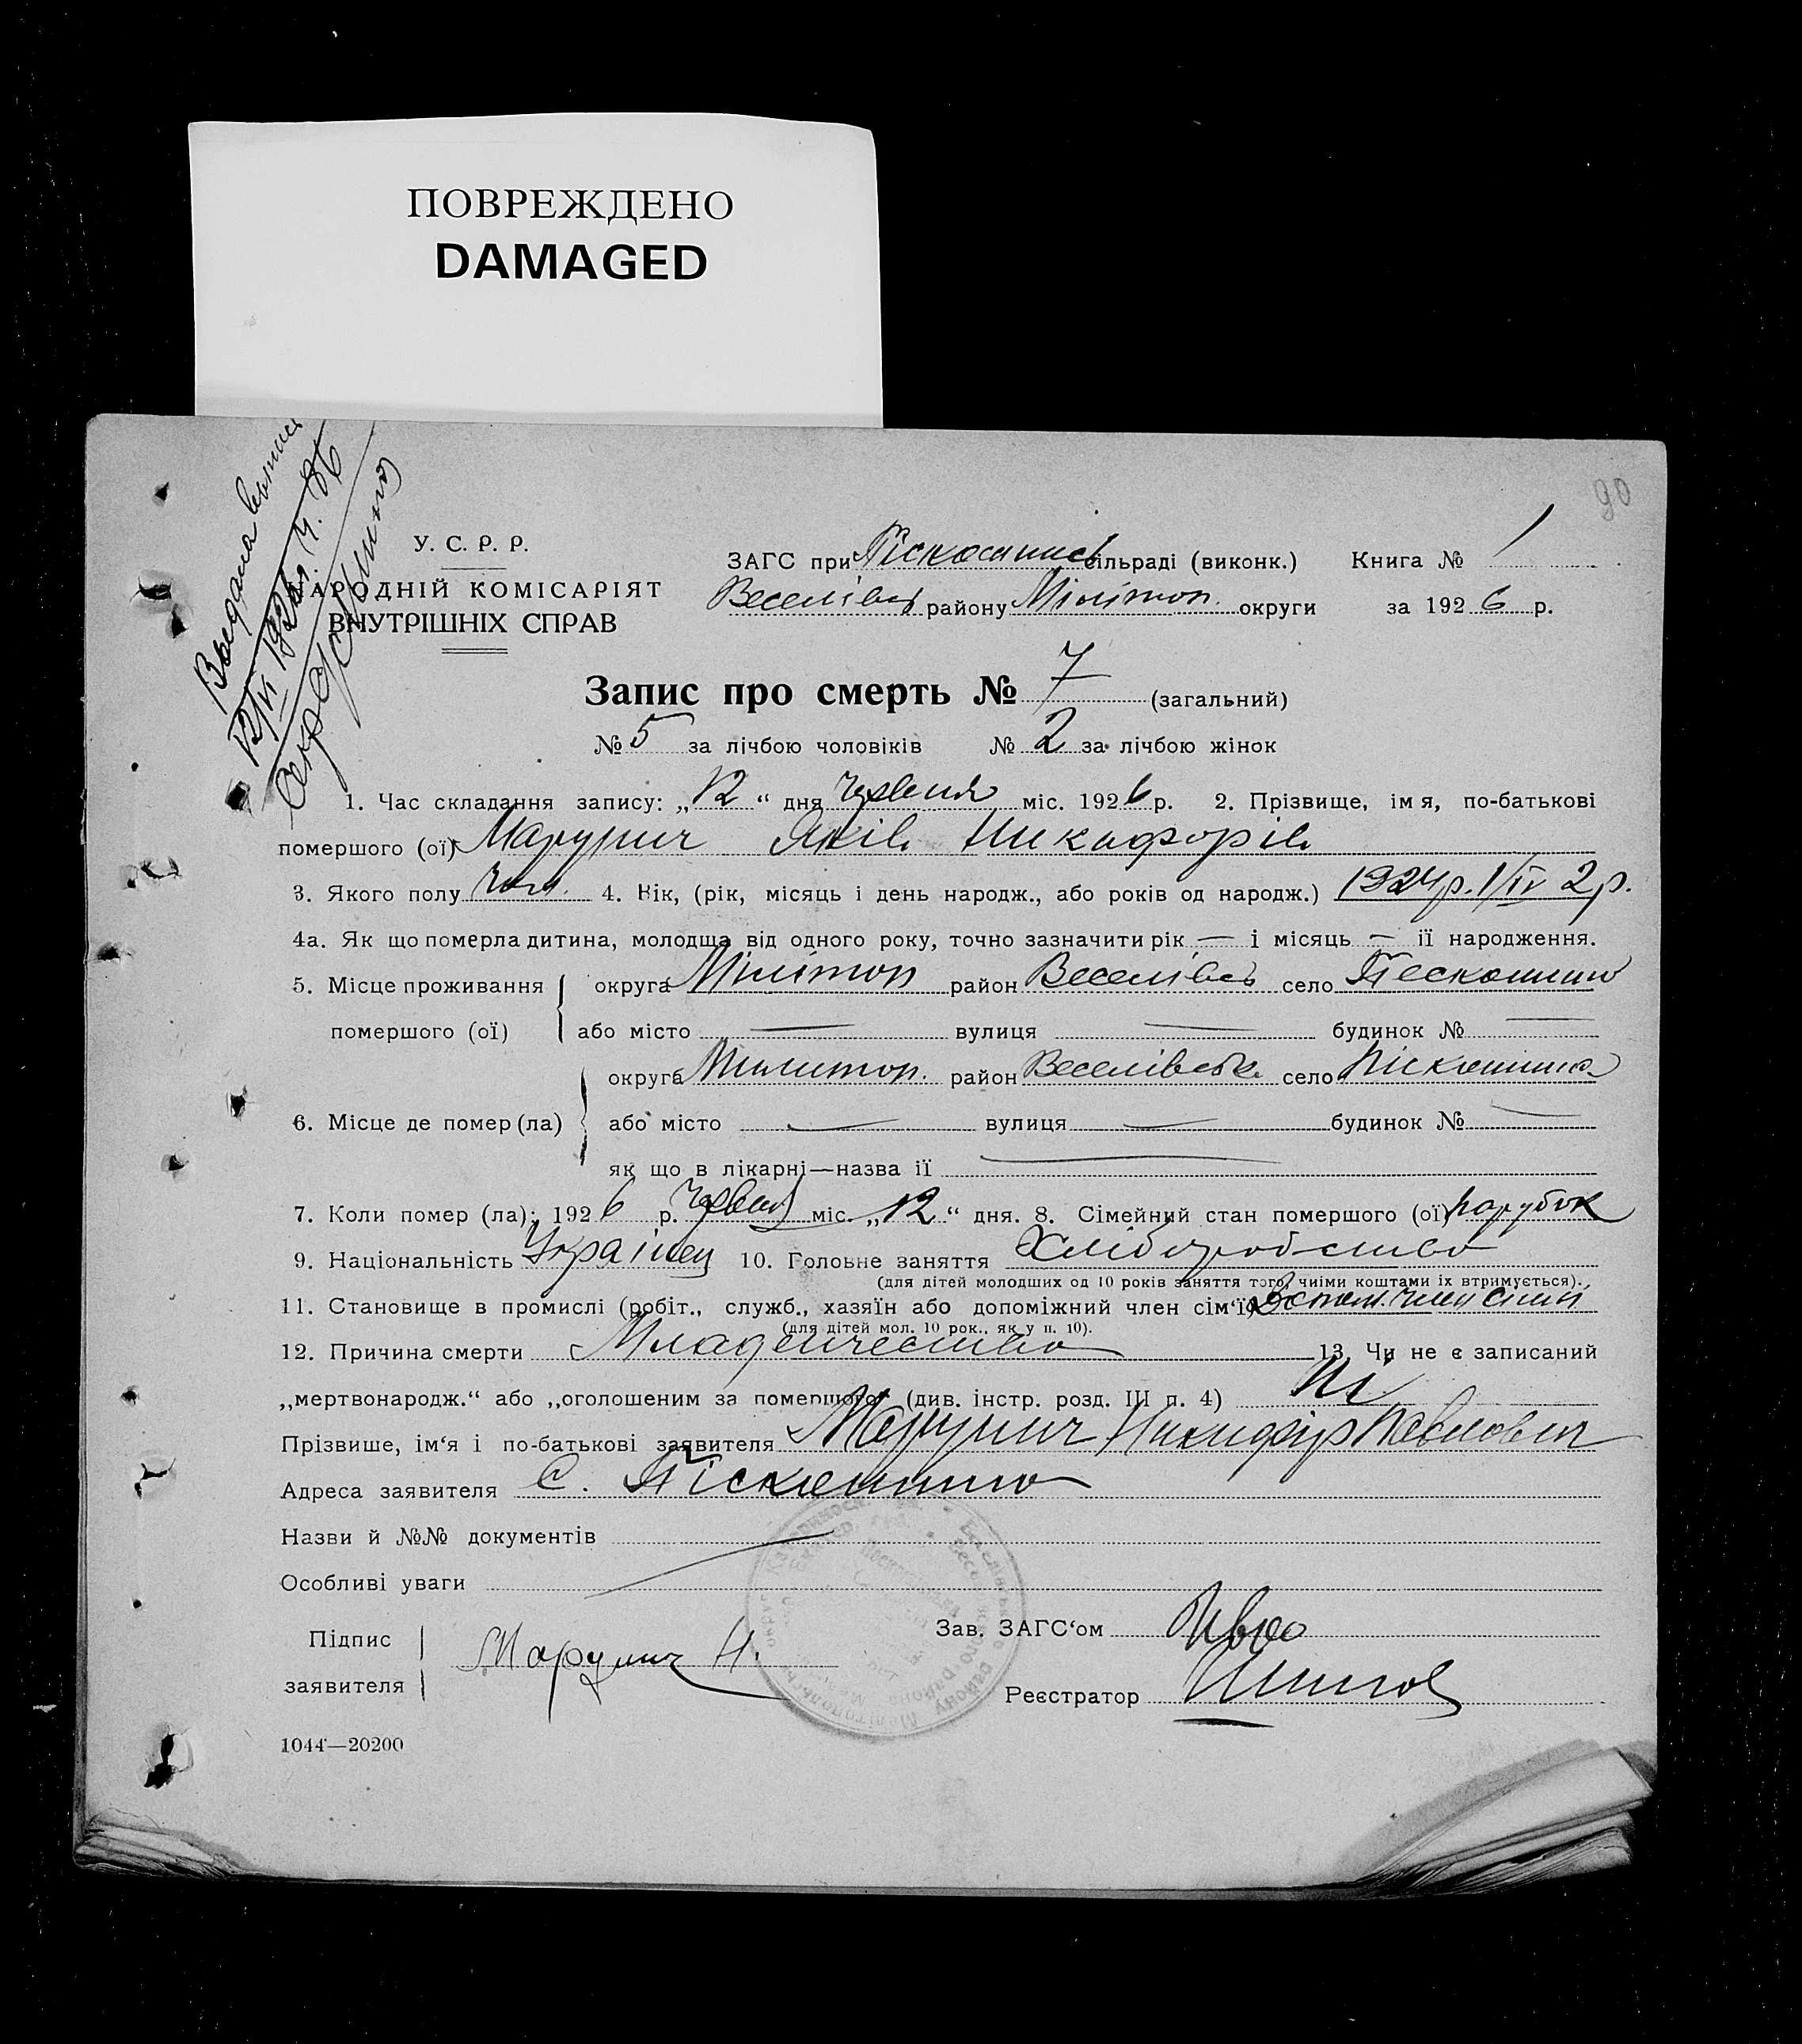 ПОВРЕЖДЕНО
DAMAGED
90
Выдана выпись
12/VI 1926 г. № 86
У. С. Р. Р.
НАРОДНІЙ КОМІСАРІЯТ
ВНУТРІШНІХ СПРАВ
ЗАГС при Піскошинс сільраді (виконк.) Книга № 1
Веселівс району Міліт​оп. округи за 1926 р.
Запис про смерть № 7 (загальний)
№ 5 за лічбою чоловіків № 2 за лічбою жінок
1. Час складання запису: „12“ дня червня міс. 1926 р. 2. Прізвище, імя, по-батькові
помершого (ої) Марунич Яків Никифорів
3. Якого полу чол. 4. Вік, (рік, місяць і день народж., або років од народж.) 1924 р. 1/IV 2 р.
4а. Як що померла дитина, молодща від одного року, точно зазначити рік — і місяць — її народження.
5. Місце проживання округа Мілітоп район Веселівсь село Пескошино
помершого (ої) або місто — вулиця — будинок № —
округа Милитоп. район Веселівськ. село Піскошино
6. Місце де помер (ла) або місто — вулиця — будинок № —
як що в лікарні—назва її —
7. Коли помер (ла): 1926 р. червня міс. „12“ дня. 8. Сімейний стан помершого (ої) парубок
9. Національність Українец 10. Головне заняття Хліборобство
(для дітей молодших од 10 років заняття того, чиїми коштами їх втримується).
11. Становище в промислі (робіт., служб., хазяїн або допоміжний член сім‘ї) член сімї
(для дітей мол. 10 рок., як у п. 10).
12. Причина смерти Младенчество 13. Чи не є записаний
„мертвонародж.“ або „оголошеним за помершого“ (див. інстр. розд. III п. 4) Ні
Прізвише, ім‘я і по-батькові заявителя Марунич Никифір Павлович
Адреса заявителя С. Піскошино
Назви й №№ документів
Особливі уваги
Підпис
заявителя Марунич Н.
Зав. ЗАГС‘ом
Реєстратор
1044—20200